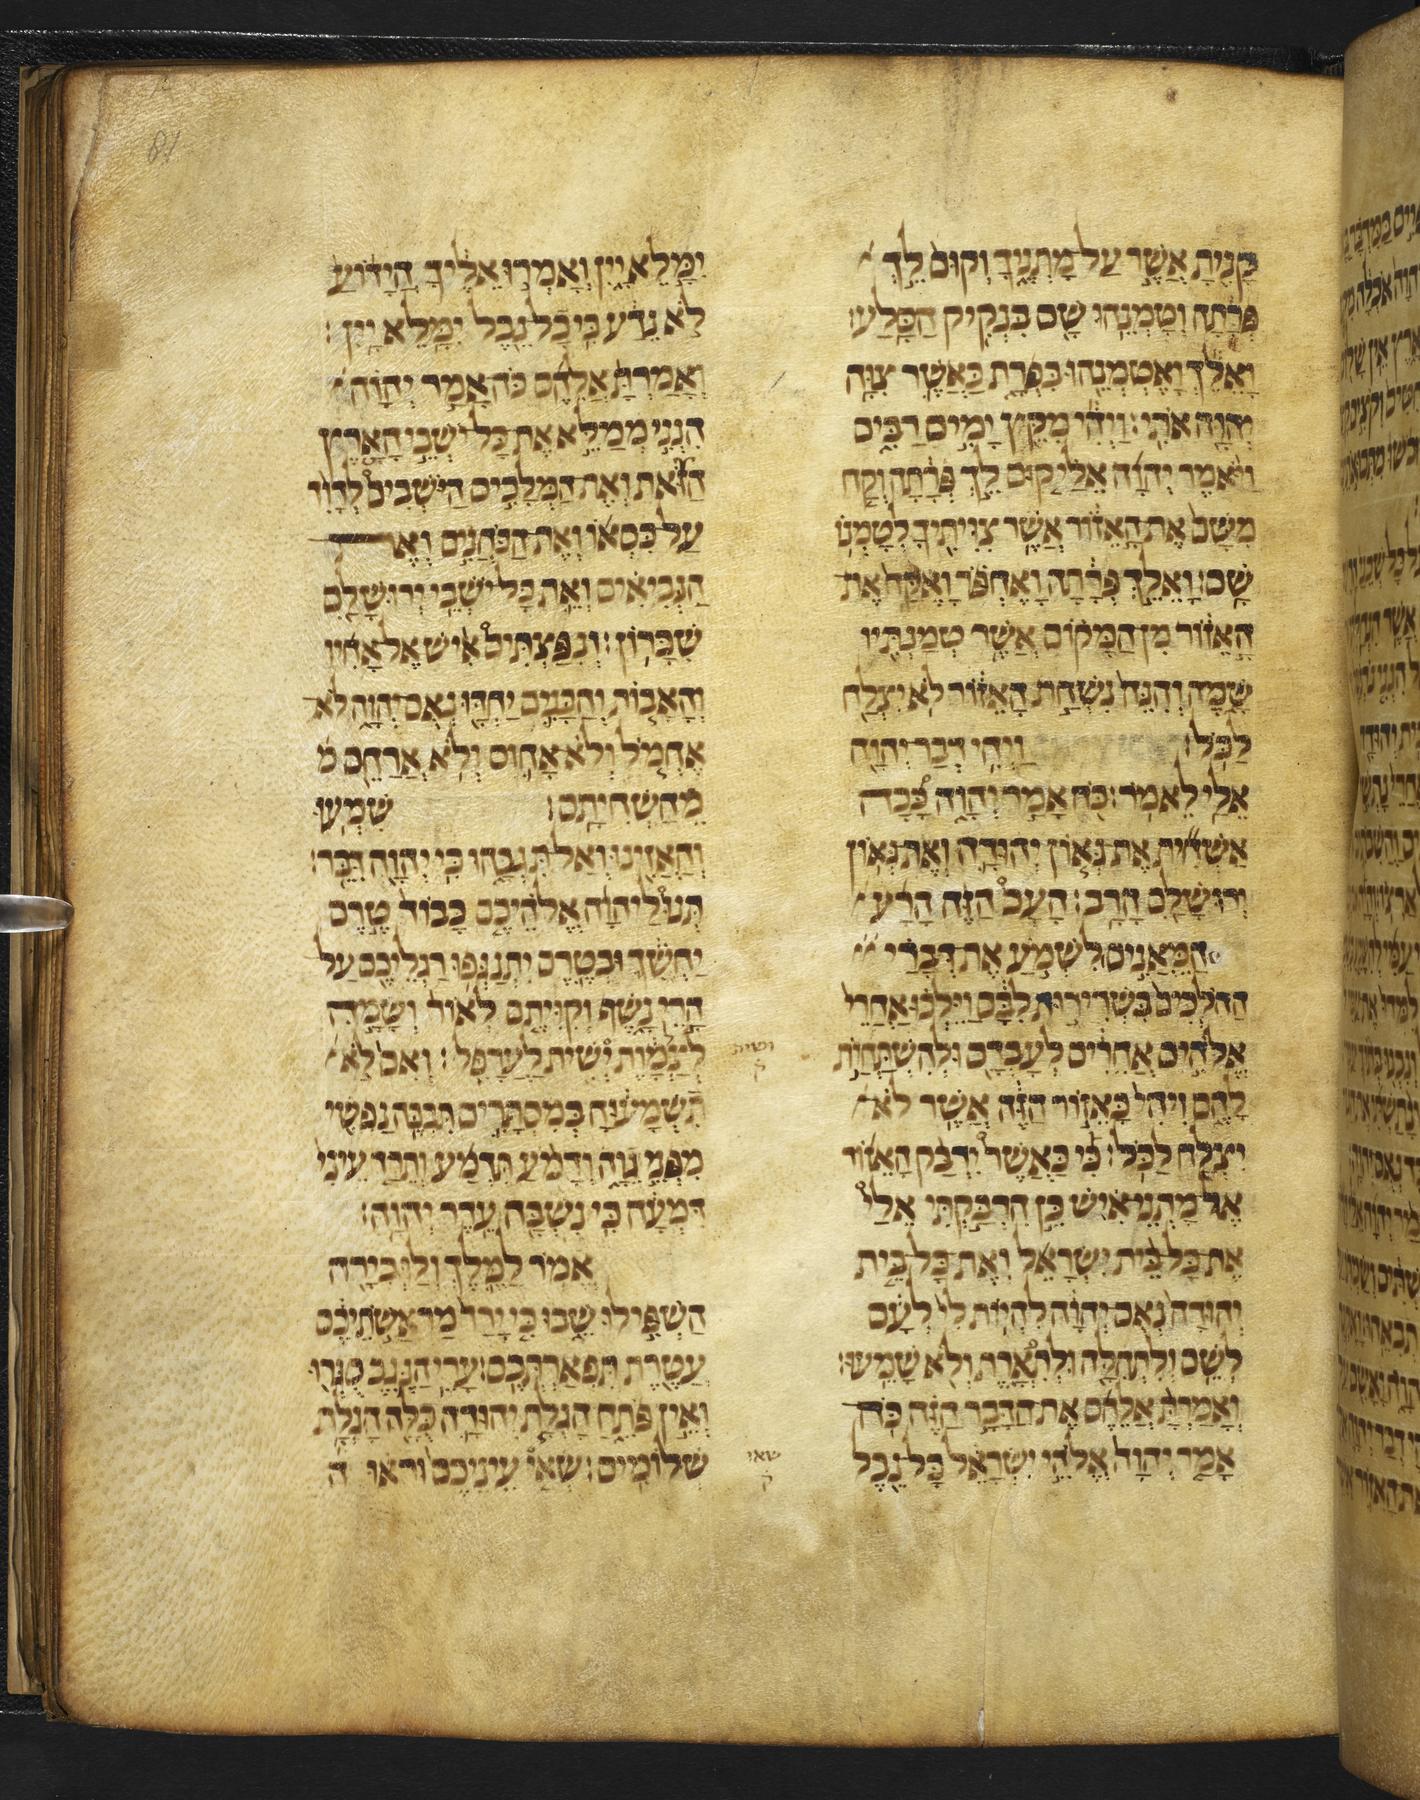 קָנִיתָ אֲשֶׁר עַל מָתְנֶיךָ וְקוּם לֵךְ
פְּרָתָה וְטָמְנֵהוּ שָׁם בִּנְקִיק הַסָּלַע׃
וָאֵלֵךְ וָאֶטְמְנֵהוּ בִּפְרָת כַּאֲשֶׁר צִוָּה
יְהוָה אֹתִי׃ וַיְהִי מִקֵּץ יָמִים רַבִּים
וַיֹּאמֶר יְהוָה אֵלַי קוּם לֵךְ פְּרָתָה וְקַח
מִשָּׁם אֶת הָאֵזוֹר אֲשֶׁר צִוִּיתִיךָ לְטָמְנוֹ
שָׁם׃ וָאֵלֵךְ פְּרָתָה וָאֶחְפֹּר וָאֶקַּח אֶת
הָאֵזוֹר מִן הַמָּקוֹם אֲשֶׁר טְמַנְתִּיו
שָׁמָּה וְהִנֵּה נִשְׁחַת הָאֵזוֹר לֹא יִצְלַח
לַכֹּל׃ וַיְהִי דְבַר יְהוָה
אֵלַי לֵאמֹר׃ כֹּה אָמַר יְהוָה כָּכָה
אַשְׁחִית אֶת גְּאוֹן יְהוּדָה וְאֶת גְּאוֹן
יְרוּשָׁלִַם הָרָב׃ הָעָם הַזֶּה הָרָע
הַמֵּאֲנִים לִשְׁמֹעַ אֶת דְּבָרַי
הַהֹלְכִים בִּשְׁרִירוּת לִבָּם וַיֵּלְכוּ אַחֲרֵי
אֱלֹהִים אֲחֵרִים לְעָבְדָם וּלְהִשְׁתַּחֲוֹת
לָהֶם וִיהִי כָּאֵזוֹר הַזֶּה אֲשֶׁר לֹא
יִצְלַח לַכֹּל׃ כִּי כַּאֲשֶׁר יִדְבַּק הָאֵזוֹר
אֶל מָתְנֵי אִישׁ כֵּן הִדְבַּקְתִּי אֵלַי
אֶת כָּל בֵּית יִשְׂרָאֵל וְאֶת כָּל בֵּית
יְהוּדָה נְאֻם יְהוָה לִהְיוֹת לִי לְעָם
לְשֵׁם וְלִתְהִלָּה וּלְתִפְאָרֶת וְלֹא שָׁמֵעוּ׃
וְאָמַרְתָּ אֲלֵהֶם אֶת הַדָּבָר הַזֶּה כֹּה
אָמַר יְהוָה אֱלֹהֵי יִשְׂרָאֵל כָּל נֵבֶל
יִמָּלֵא יָיִן וְאָמְרוּ אֵלֶיךָ הֲיָדֹעַ
לֹא נֵדַע כִּי כָל נֵבֶל יִמָּלֵא יָיִן׃
וְאָמַרְתָּ אֲלֵהֶם כֹּה אָמַר יְהוָה
הִנְנִי מְמַלֵּא אֶת כָּל יֹשְׁבֵי הָאָרֶץ
הַזֹּאת וְאֶת הַמְּלָכִים הַיֹּשְׁבִים לְדָוִד
עַל כִּסְאוֹ וְאֶת הַכֹּהֲנִים וְאֶת
הַנְּבִיאִים וְאֵת כָּל יֹשְׁבֵי יְרוּשָׁלִָם
שִׁכָּרוֹן׃ וְנִפַּצְתִּים אִישׁ אֶל אָחִיו
וְהָאָבוֹת וְהַבָּנִים יַחְדָּו נְאֻם יְהוָה לֹא
אֶחְמוֹל וְלֹא אָחוּס וְלֹא אֲרַחֵם מ
מֵהַשְׁחִיתָם׃ שִׁמְעוּ
וְהַאֲזִינוּ אַל תִּגְבָּהוּ כִּי יְהוָה דִּבֵּר׃
תְּנוּ לַיהוָה אֱלֹהֵיכֶם כָּבוֹד בְּטֶרֶם
יַחְשִׁךְ וּבְטֶרֶם יִתְנַגְּפוּ רַגְלֵיכֶם עַל
הָרֵי נָשֶׁף וְקִוִּיתֶם לְאוֹר וְשָׂמָהּ
לְצַלְמָוֶת יְשִׁית לַעֲרָפֶל׃ וְאִם לֹא
ושית
ק
תִשְׁמָעוּהָ בְּמִסְתָּרִים תִּבְכֶּה נַפְשִׁי
מִפְּנֵי גֵוָה וְדָמֹעַ תִּדְמַע וְתֵרַד עֵינִי
דִּמְעָה כִּי נִשְׁבָּה עֵדֶר יְהוָה׃
אֱמֹר לַמֶּלֶךְ וְלַגְּבִירָה
הַשְׁפִּילוּ שֵׁבוּ כִּי יָרַד מַרְאֲשׁוֹתֵיכֶם
עֲטֶרֶת תִּפְאַרְתְּכֶם׃ עָרֵי הַנֶּגֶב סֻגְּרוּ
וְאֵין פֹּתֵחַ הָגְלָת יְהוּדָה כֻּלָּהּ הָגְלָת
שְׁלוֹמִים׃ שְׂאִי עֵינֵיכֶם וּרְאוּ ה
שאי
ק